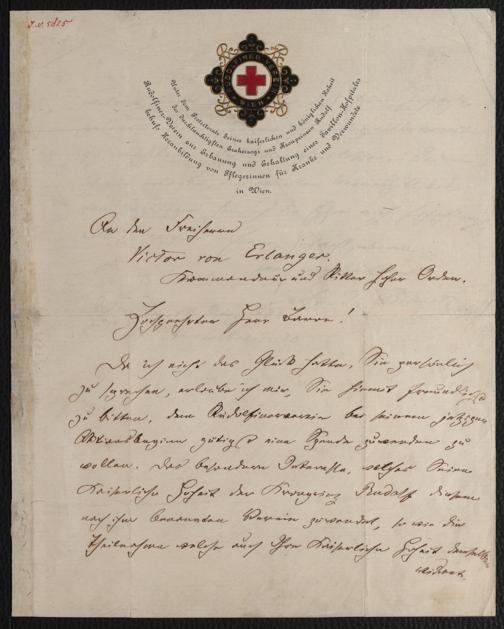 I.N. 5825
RUDOLFINER-VEREIN WIEN
Unter dem Protectorate Seiner kaiserlichen und königlichen Hoheit
des durchlauchtigsten Erzherzogs und Kronprinzen Rudolf.
Rudolfiner-Verein zur Erbauung und Erhaltung eines Pavillon-Hospitales
behufs Heranbildung von Pflegerinnen für Kranke und Verwundete
in Wien.
An den Freiherrn
Victor von Erlanger.
Kommandeur und Ritter hoher Orden.
Hochgeehrter Herr Baron!
Da ich nicht das Glück hatte, Sie persönlich
zu sprechen, erlaube ich mir, Sie hiemit freundlichst
zu bitten, dem Rudolfinerverein bei seinem jetzigen
gütigst eine Spende zuwenden zu
wollen. Das besondere Interesse, welches Seine
Kaiserliche Hoheit der Kronprinz Rudolf diesem
nach ihm benannten Verein zuwendet, so wie die
Theilnahme welche auch Ihre Kaiserliche Hoheit demselben
widmet,